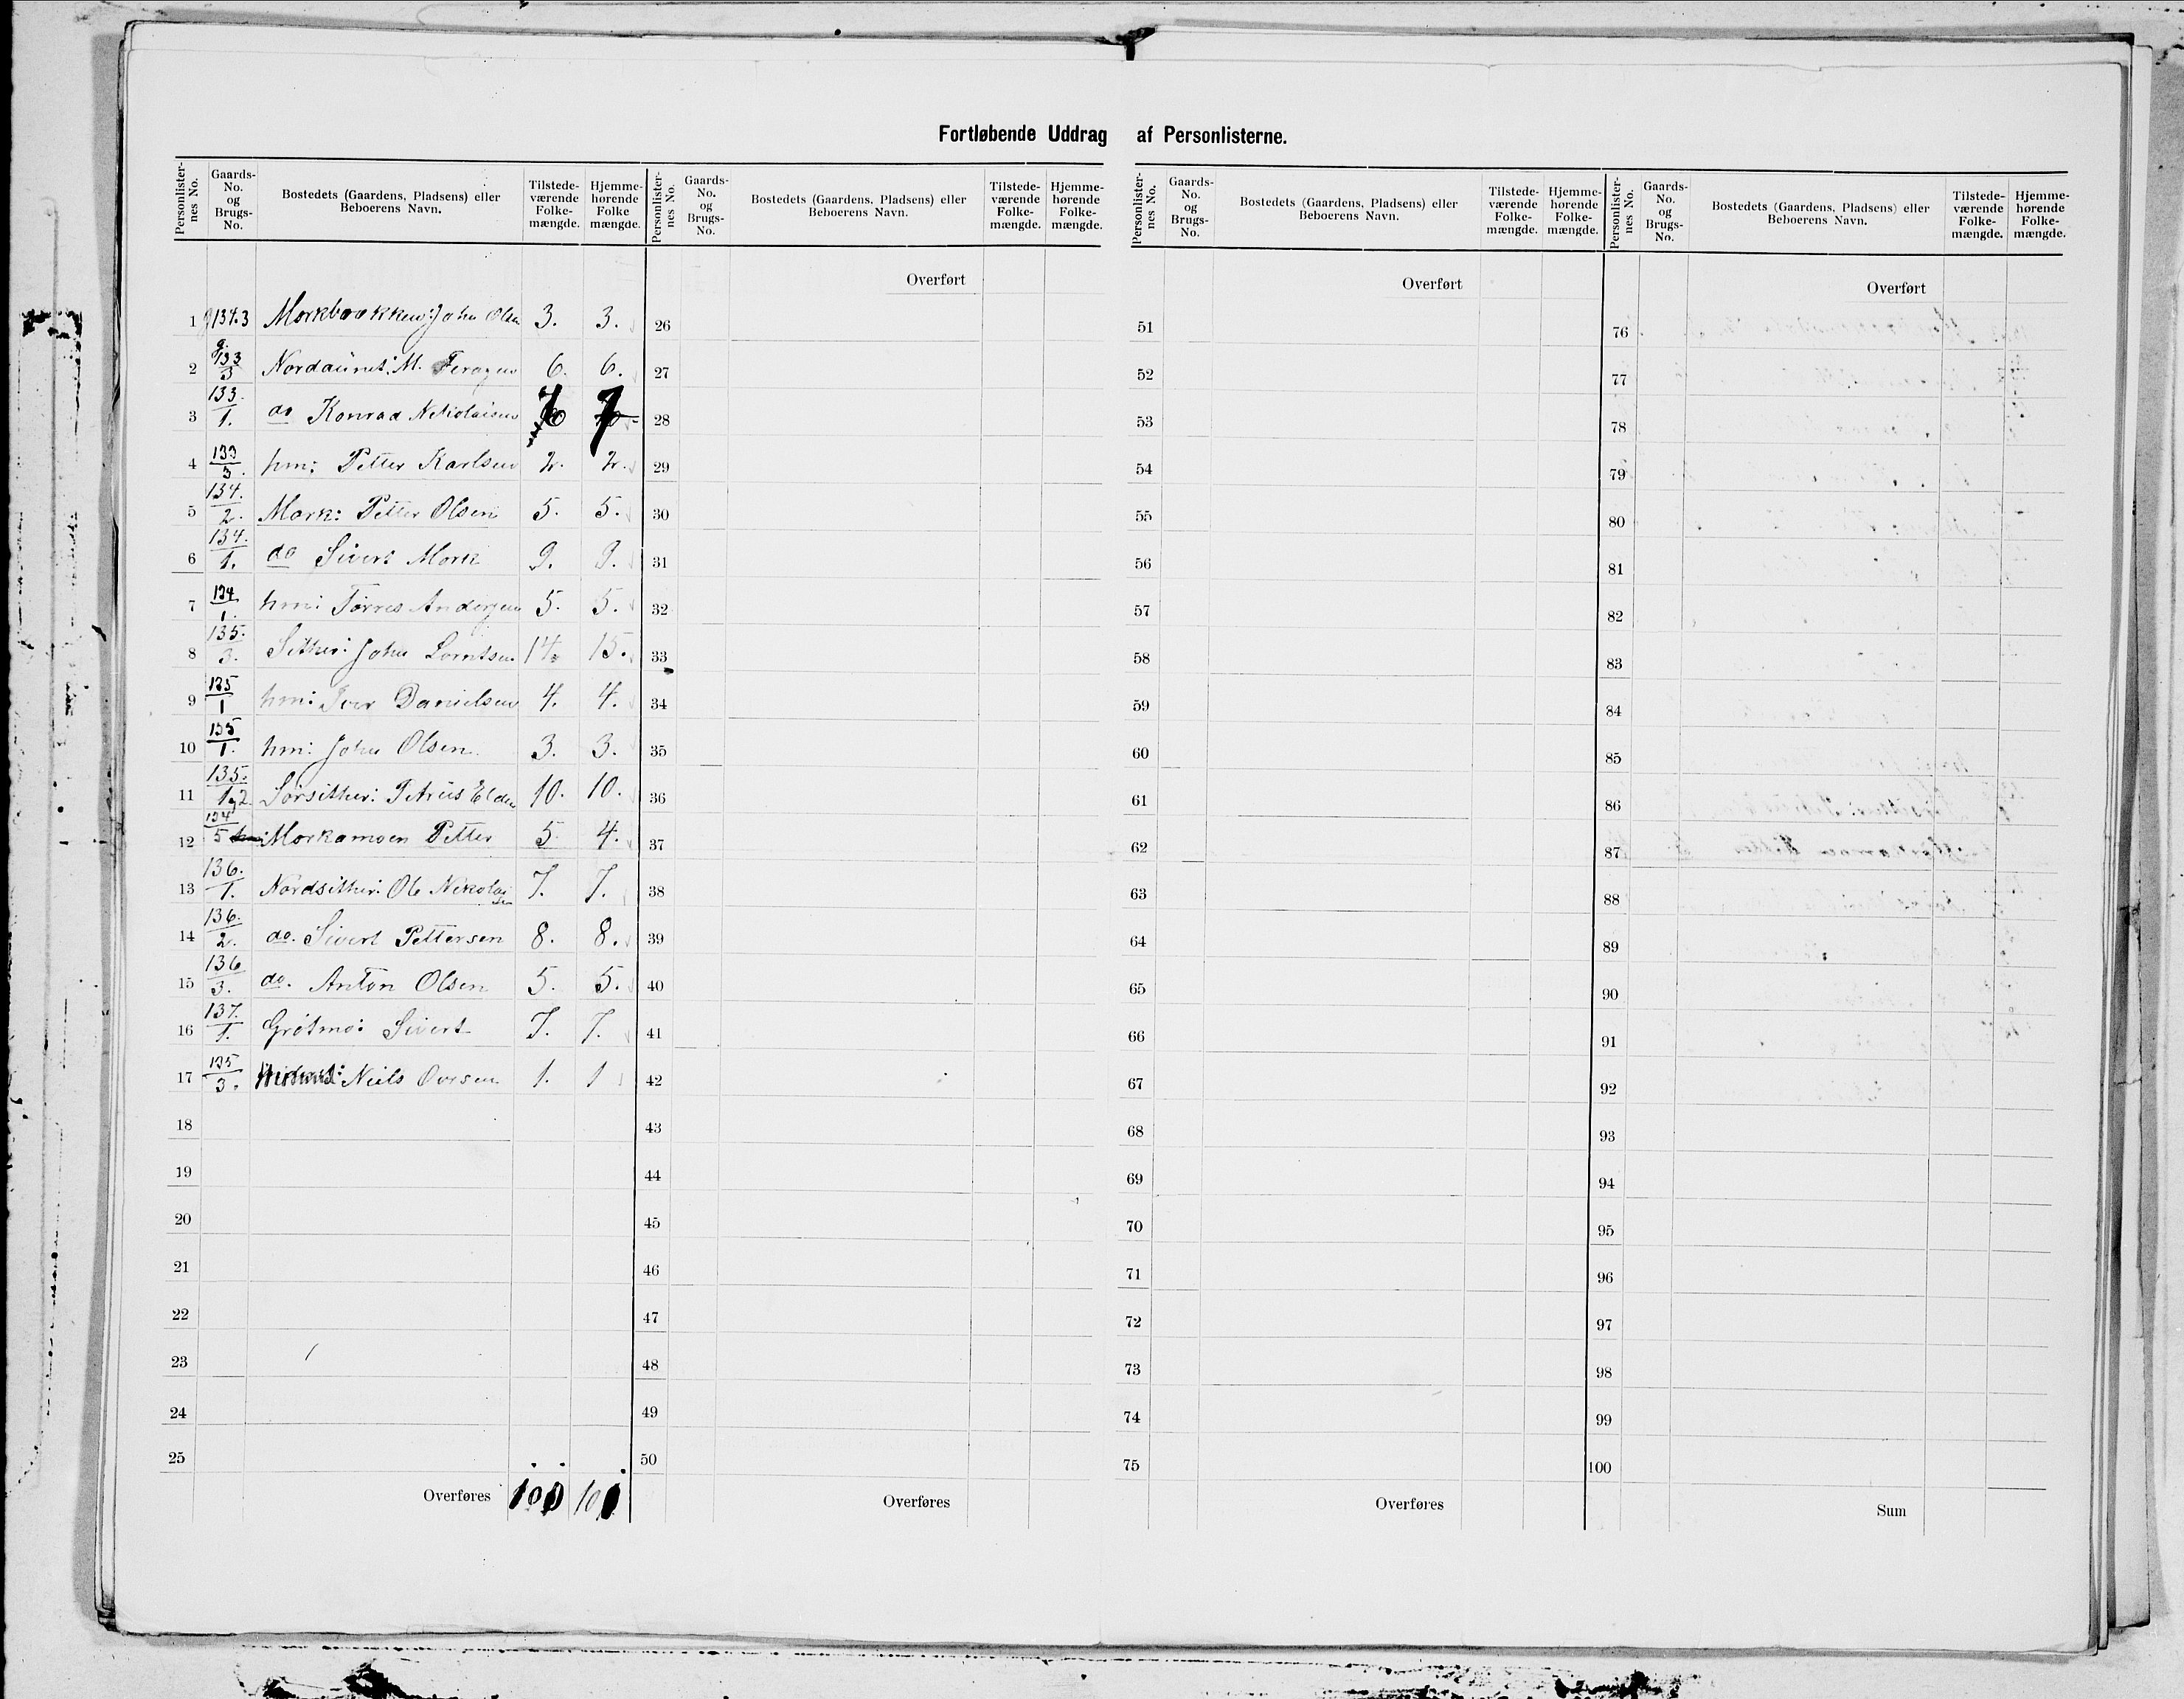 Fortløbende Uddrag af Personlisterne.
Personlister-nes No. Gaards-No. og Brugs-No. Bostedets (Gaardens, Pladsens) eller Beboerens Navn. Tilstede-værende Folke-mængde. Hjemme-hørende Folke mængde.
Personlister-nes No. Gaards-No. og Brugs-No. Bostedets (Gaardens, Pladsens) eller Beboerens Navn. Tilstede-værende Folke-mængde. Hjemme-hørende Folke-mængde.
Personlister-nes No. Gaards-No. og Brugs-No. Bostedets (Gaardens, Pladsens) eller Beboerens Navn. Tilstede-værende Folke-mængde. Hjemme-hørende Folke-mængde.
Personlister-nes No. Gaards-No. og Brugs-No. Bostedets (Gaardens, Pladsens) eller Beboerens Navn. Tilstede-værende Folke-mængde. Hjemme-hørende Folke-mængde.
1 John Olsen 3. 3.
2 133/3 M. 6. 6.
3 133/1. do Konrad 7 7
4 133/3. hm: Petter Karlsen 2. 2.
5 134./2. Mork: Petter Olsen 5. 5.
6 134./1. do Sivert Mork 9. 9.
7 134/1. hm: Torres Andersen 5. 5.
8 135./3. Sither: John Lorntsen 14 15.
9 135/1 hm: Iver Danielsen 4. 4.
10 135/1. hm: John Olsen 3. 3.
11 135./1 2 Sørsither: Petrus Elden 10. 10.
12 134/5 Morkamoen Petter 5 4.
13 136./1. Nordsither: Ole Nikolaisen 7. 7.
14 136./2. do. Sivert Pettersen 8. 8.
15 136/3. do. Anton Olsen 5. 5.
16 137./1. Grøtmo: Sivert 7. 7.
17 135/3. Niels 1. 1
18
19
20
21
22
23
24
25
Overføres 100 101
Overført
26
27
28
29
30
31
32
33
34
35
36
37
38
39
40
41
42
43
44
45
46
47
48
49
50
Overføres
Overført
51
52
53
54
55
56
57
58
59
60
61
62
63
64
65
66
67
68
69
70
71
72
73
74
75
Overføres
Overført
76
77
78
79
80
81
82
83
84
85
86
87
88
89
90
91
92
93
94
95
96
97
98
99
100
Sum